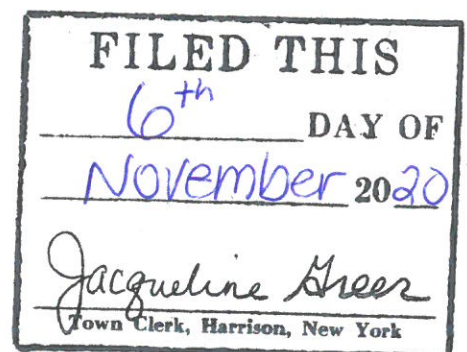 FILED THIS
6th DAY OF
November 2020
Jacqueline Greer
Town Clerk, Harrison, New York